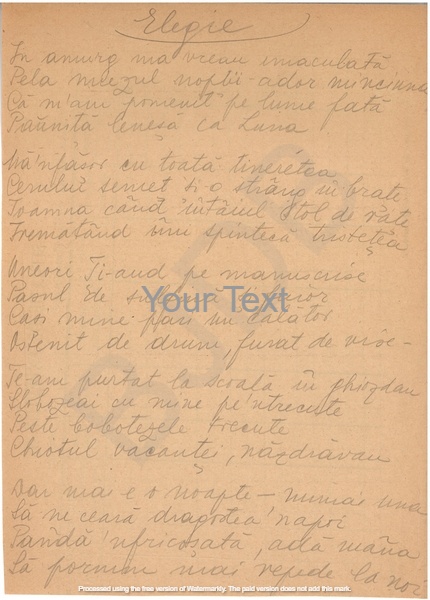 Elegie
In amurg mă vreau imaculată
Pela miezul nopții - ador minciuna
Că m'am pomenit pe lume fată
Păuniță lenesă ca Luna
Mă'nfăsor cu toată tineretea
Cerului semet si-o strâng în brate
Toamna când întâiul stol de rate
Trematând îmi spintecă tristețea
Uneori Ti-aud pe manuscrise
Pasul de
Your Text
Casi mine pari un călător
Ostenit de drum, furat de vise -
Te-am purtat la scoală în ghiozdan
Slobozeai cu mine pe'ntrecute
Peste bobotezele trecute
Chiotul vacanței, năzdrăvan
Dar mai e o noapte - numai una
Să ne ceară dragostea 'napoi
Pandă 'nfricosată, adă mâna
Să pornim mai repede la noi
Processed using the free version of Watermarkly. The paid version does not add this mark.